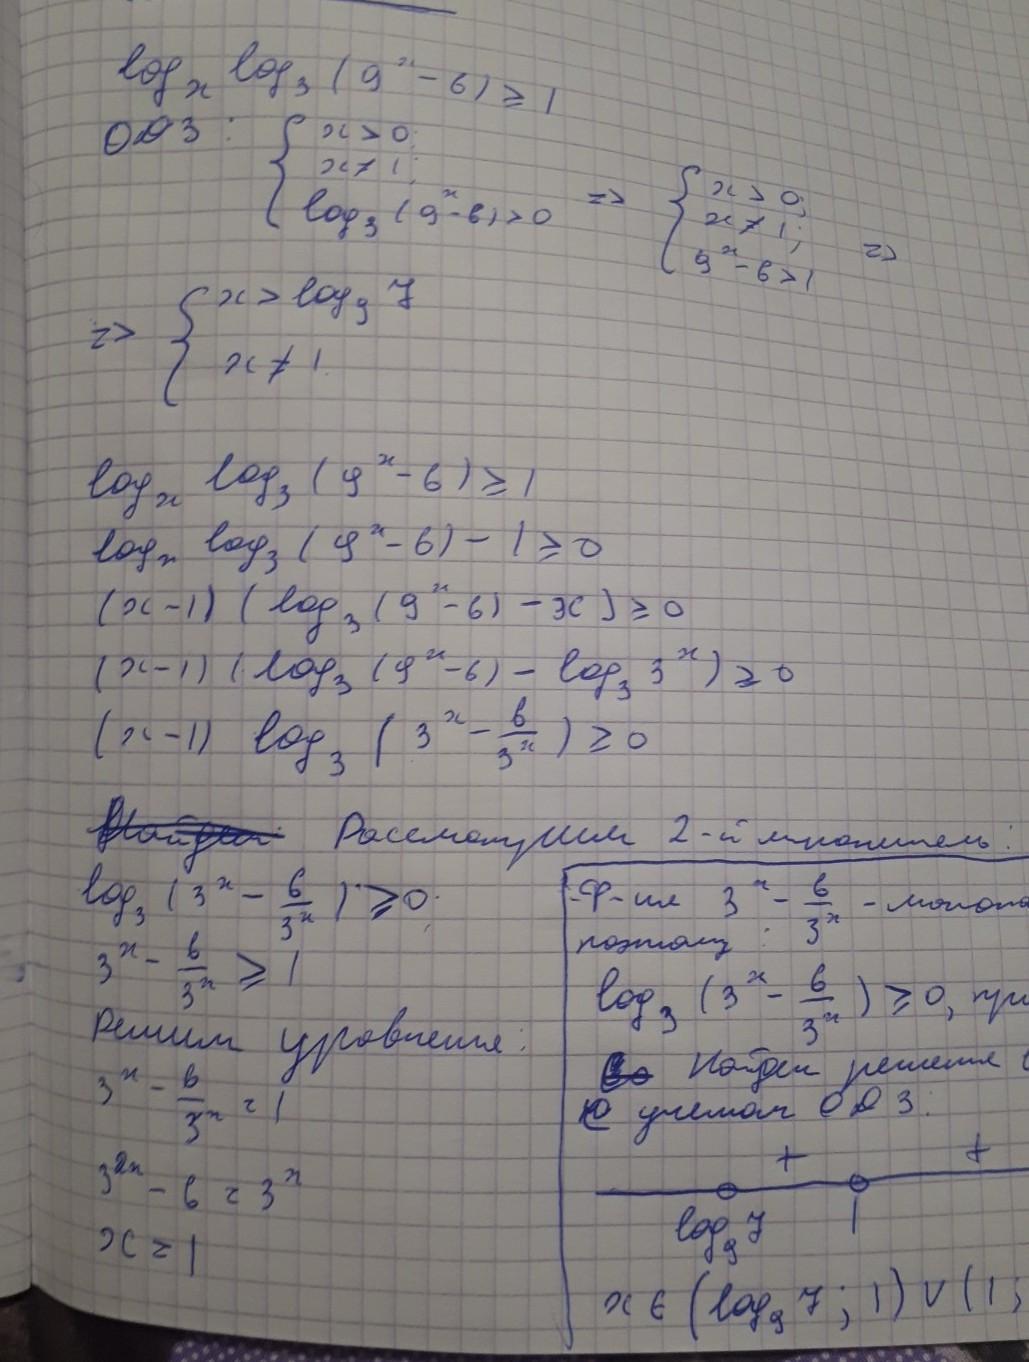 log_x log_3 (9^x - 6) ≥ 1
ОДЗ: { x > 0; x ≠ 1; log_3 (9^x - 6) > 0 => { x > 0; x ≠ 1; 9^x - 6 > 1 =>
=> { x > log_9 7 x ≠ 1.
log_x log_3 (9^x - 6) ≥ 1
log_x log_3 (9^x - 6) - 1 ≥ 0
(x - 1) (log_3 (9^x - 6) - x) ≥ 0
(x - 1) (log_3 (9^x - 6) - log_3 3^x) ≥ 0
(x - 1) log_3 (3^x - 6/3^x) ≥ 0
Рассмотрим 2-й множитель:
log_3 (3^x - 6/3^x) ≥ 0;
3^x - 6/3^x ≥ 1
Решим уравнение:
3^x - 6/3^x = 1
3^2x - 6 = 3^x
x = 1
Ф-ия 3^x - 6/3^x - моното
поэтому:
log_3 (3^x - 6/3^x) ≥ 0, при
Найдем решения
с учетом ОДЗ:
+ +
log_9 7 1
x ∈ (log_9 7; 1) ∪ (1;